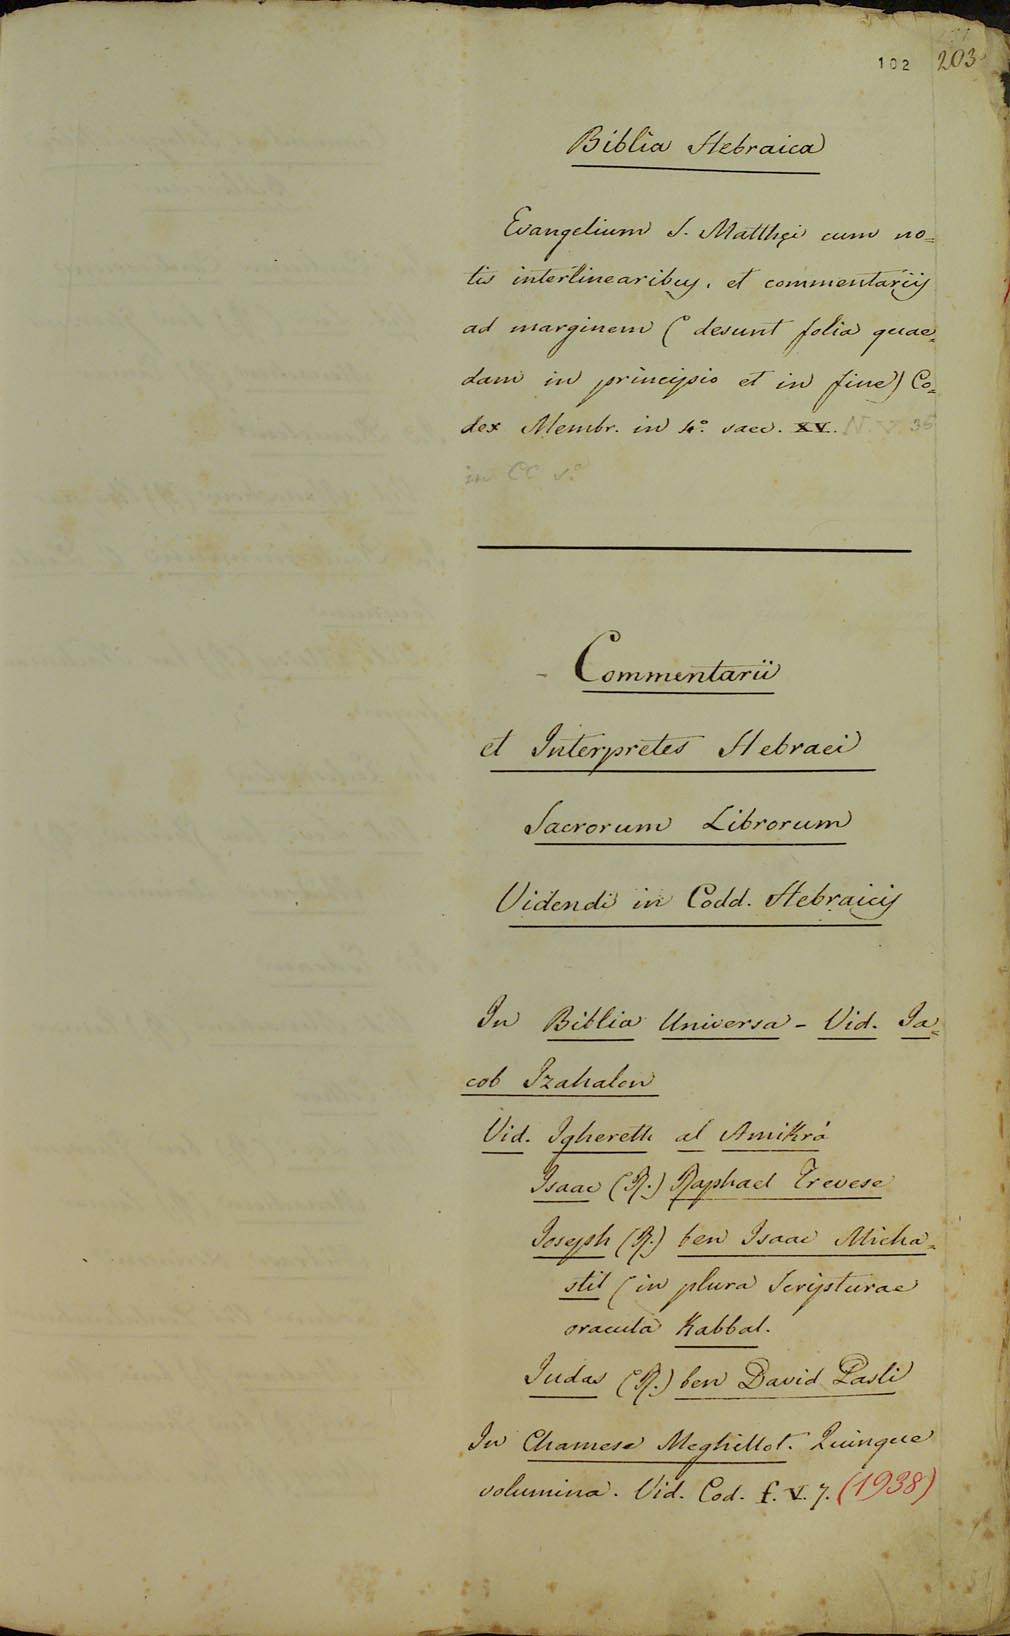 102 203
Biblia Hebraica
Evangelium S. Matthęi cum no=
tis interlinearibus, et commentariis
ad marginem (desunt folia quae=
dam in principio et in fine) Co=
dex Membr. in 4.º saec. XV. N. V. 36
in CC v.º
Commentarii
et Interpretes Hebraei
Sacrorum Librorum
Videndi in Codd. Hebraicis
In Biblia Universa - Vid. Ia=
cob Izahalon
Vid. Ighereth al Amikrá
Isaac (R.) Raphael Trevese
Joseph (R.) ben Isaac Micha=
stil (in plura Scripturae
oracula Kabbal.
Judas (R.) ben David Pasli
In Chamesc Meghillot. Quinque
volumina. Vid. Cod. f. V. 7. (1938)